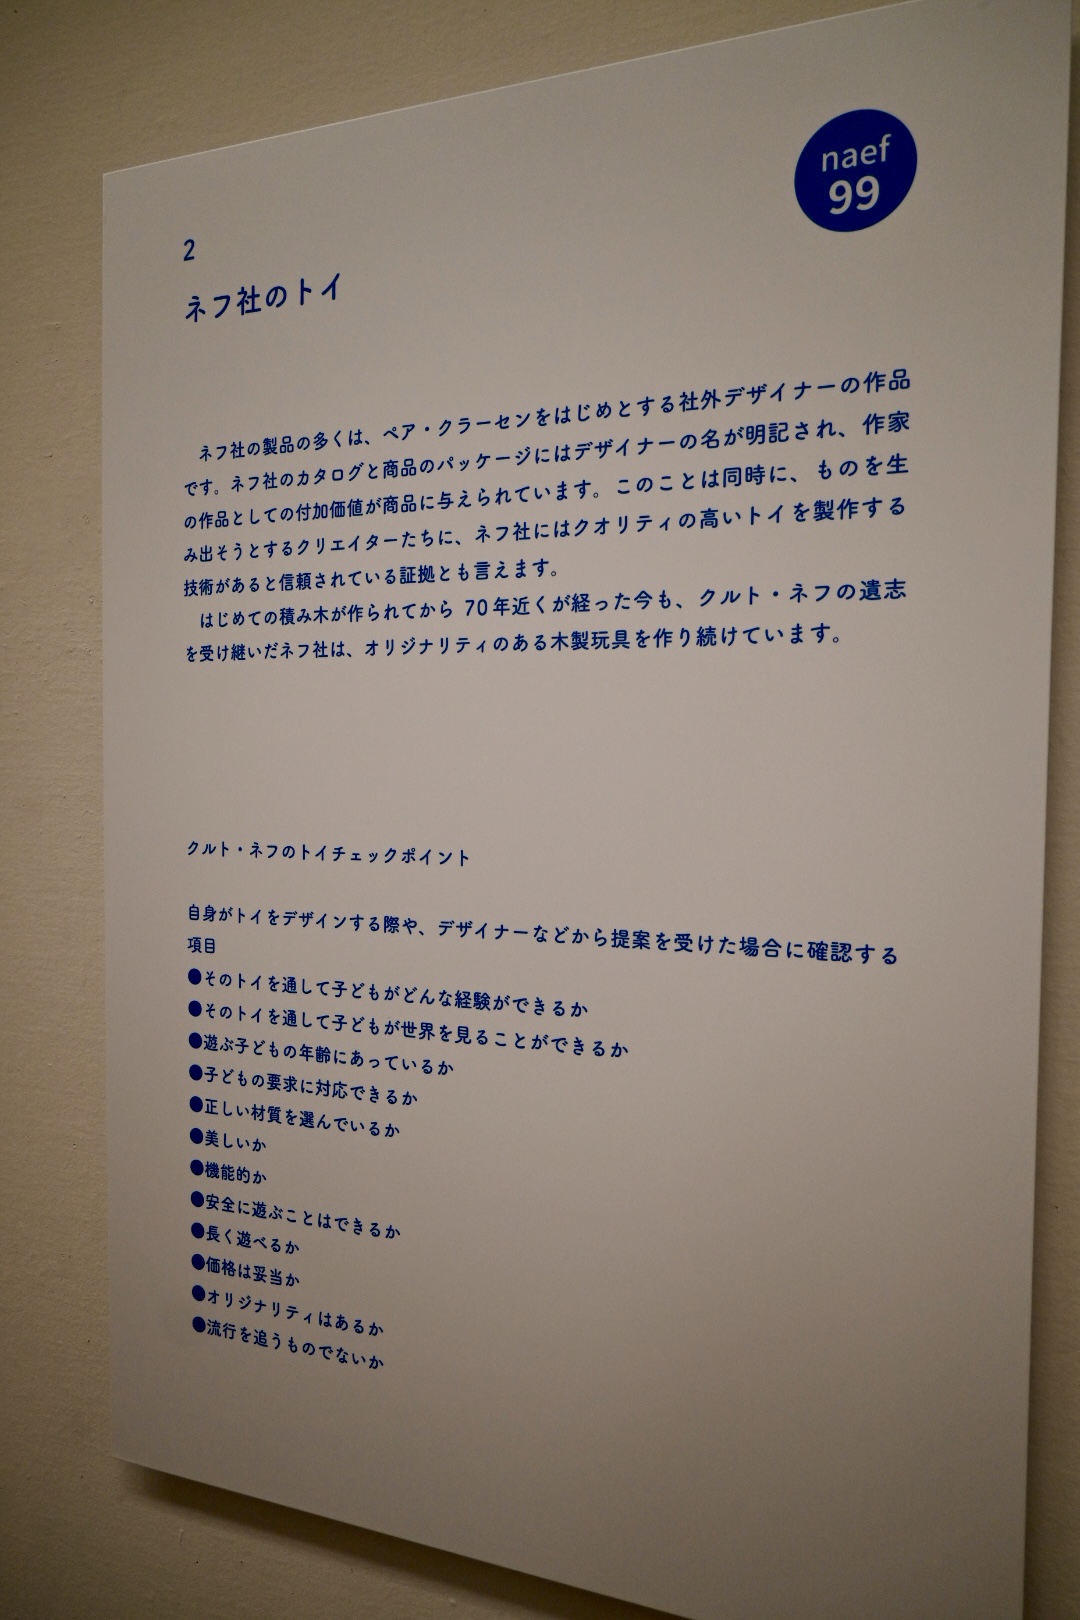 naef
99
2
ネフ社のトイ
ネフ社の製品の多くは、ペア・クラーセンをはじめとする社外デザイナーの作品
です。ネフ社のカタログと商品のパッケージにはデザイナーの名が明記され、作家
の作品としての付加価値が商品に与えられています。このことは同時に、ものを生
み出そうとするクリエイターたちに、ネフ社にはクオリティの高いトイを製作する
技術があると信頼されている証拠とも言えます。
はじめての積み木が作られてから 70年近くが経った今も、クルト・ネフの遺志
を受け継いだネフ社は、オリジナリティのある木製玩具を作り続けています。
クルト・ネフのトイチェックポイント
自身がトイをデザインする際や、デザイナーなどから提案を受けた場合に確認する
項目
●そのトイを通して子どもがどんな経験ができるか
●そのトイを通して子どもが世界を見ることができるか
●遊ぶ子どもの年齢にあっているか
●子どもの要求に対応できるか
●正しい材質を選んでいるか
●美しいか
●機能的か
●安全に遊ぶことはできるか
●長く遊べるか
●価格は妥当か
●オリジナリティはあるか
●流行を追うものでないか